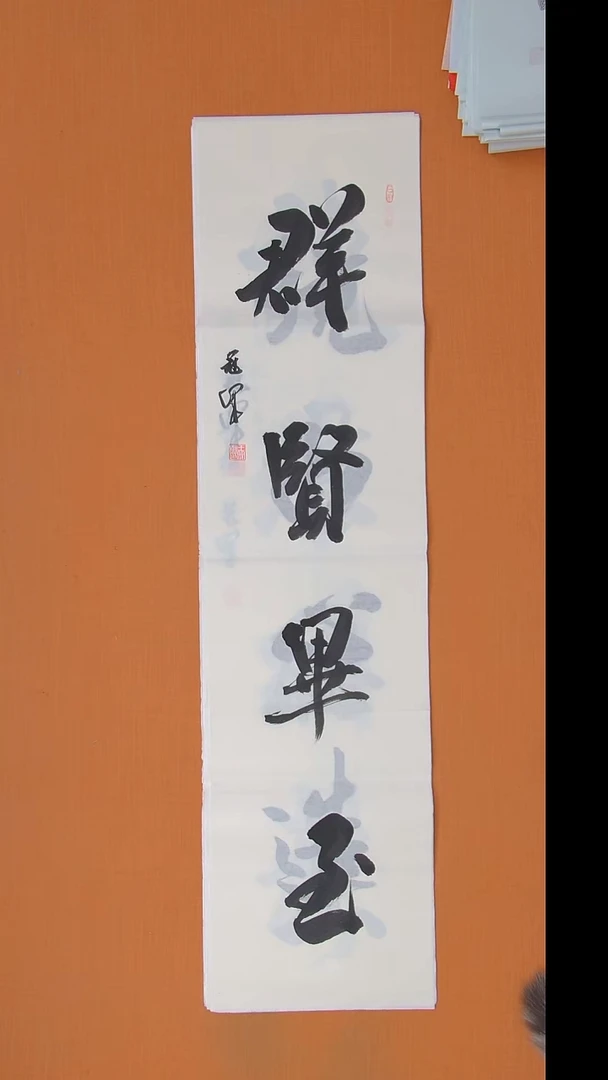 群賢畢至